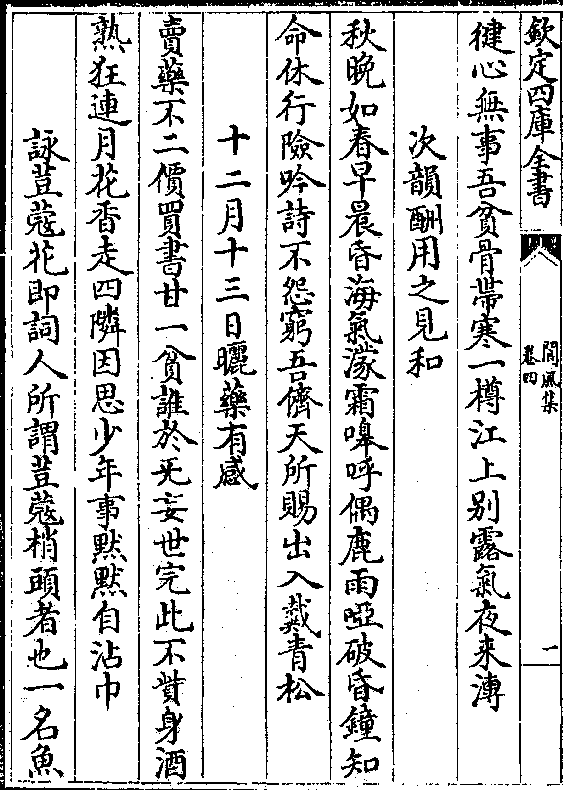 欽定四庫全書
閬風集
卷四
一
徤心無事吾貧骨帶寒一樽江上别露氣夜来漙
次韻酬用之見和
秋晩如春早晨昏海氣濛霜嘷呼偶鹿雨啞破昏鐘知
命休行險吟詩不怨窮吾儕天所賜出入戴青松
十二月十三日曬藥有感
賣藥不二價買書甘一貧誰於无妄世完此不貲身酒
熟狂連月花香走四隣因思少年事黙黙自沾巾
詠荳蔻花即詞人所謂荳蔻梢頭者也一名魚